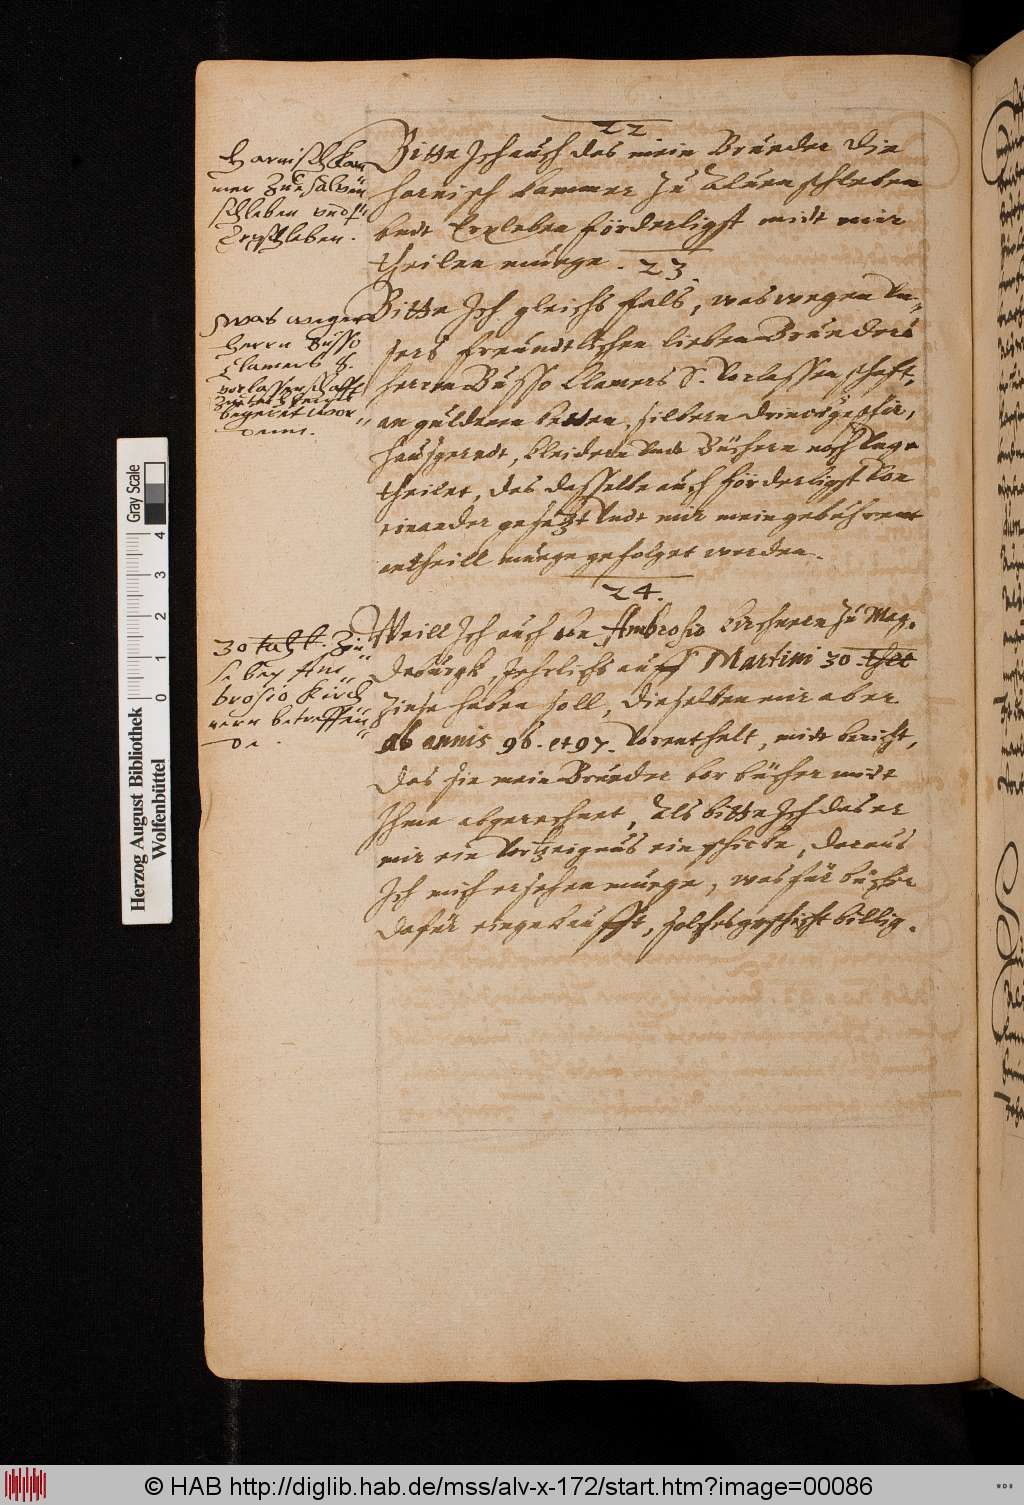 22
Bitte Ich auch das mein Brueder die
harnisch kammer zu Aluenschleben
vndt Erxleben förderligst midt mir
theilen muege.
23.
Bitte Ich gleichs fals, was wegen Vn-
sers freundtlichen lieben Brueders
herren Busso Clamers S. Verlassenschaft,
an guldenen ketten, silbern
hausgeradt, kleidern vndt Büchern noch Vnge
theilet, das dasselbe auch förderligst von
einander gesetzt vndt mir mein gebuhrent
antheill muege gefolget werden.
24.
Weill Ich auch von Ambrosio Kirchnern zu Mag-
deburgk, Jehrlichs auff Martini 30 thlr
Zinse haben soll, dieselben mir aber
ab annis 96. et 97. Vorenthalt, midt bericht,
das sie mein Brueder vor bücher midt
Ihme abgerechnet, Als bitte Ich das er
mir ein Vortzeignus einschicke, daraus
Ich mich ersehen muege, was für bücher
dafür eingekaufft, solches geschicht billig.
Harnisch kam
mer Zue Aluen
schleben vndt
Erxleben.
Was wegen
Herrn Busso
Clamers S.
verlassenschafft
begeret wor
denn.
30 talr. Zin
se bey Am
brosio Kirch
nern betreffen
de.
Herzog August Bibliothek
Wolfenbüttel
Gray Scale
0 1 2 3 4
© HAB http://diglib.hab.de/mss/alv-x-172/start.htm?image=00086